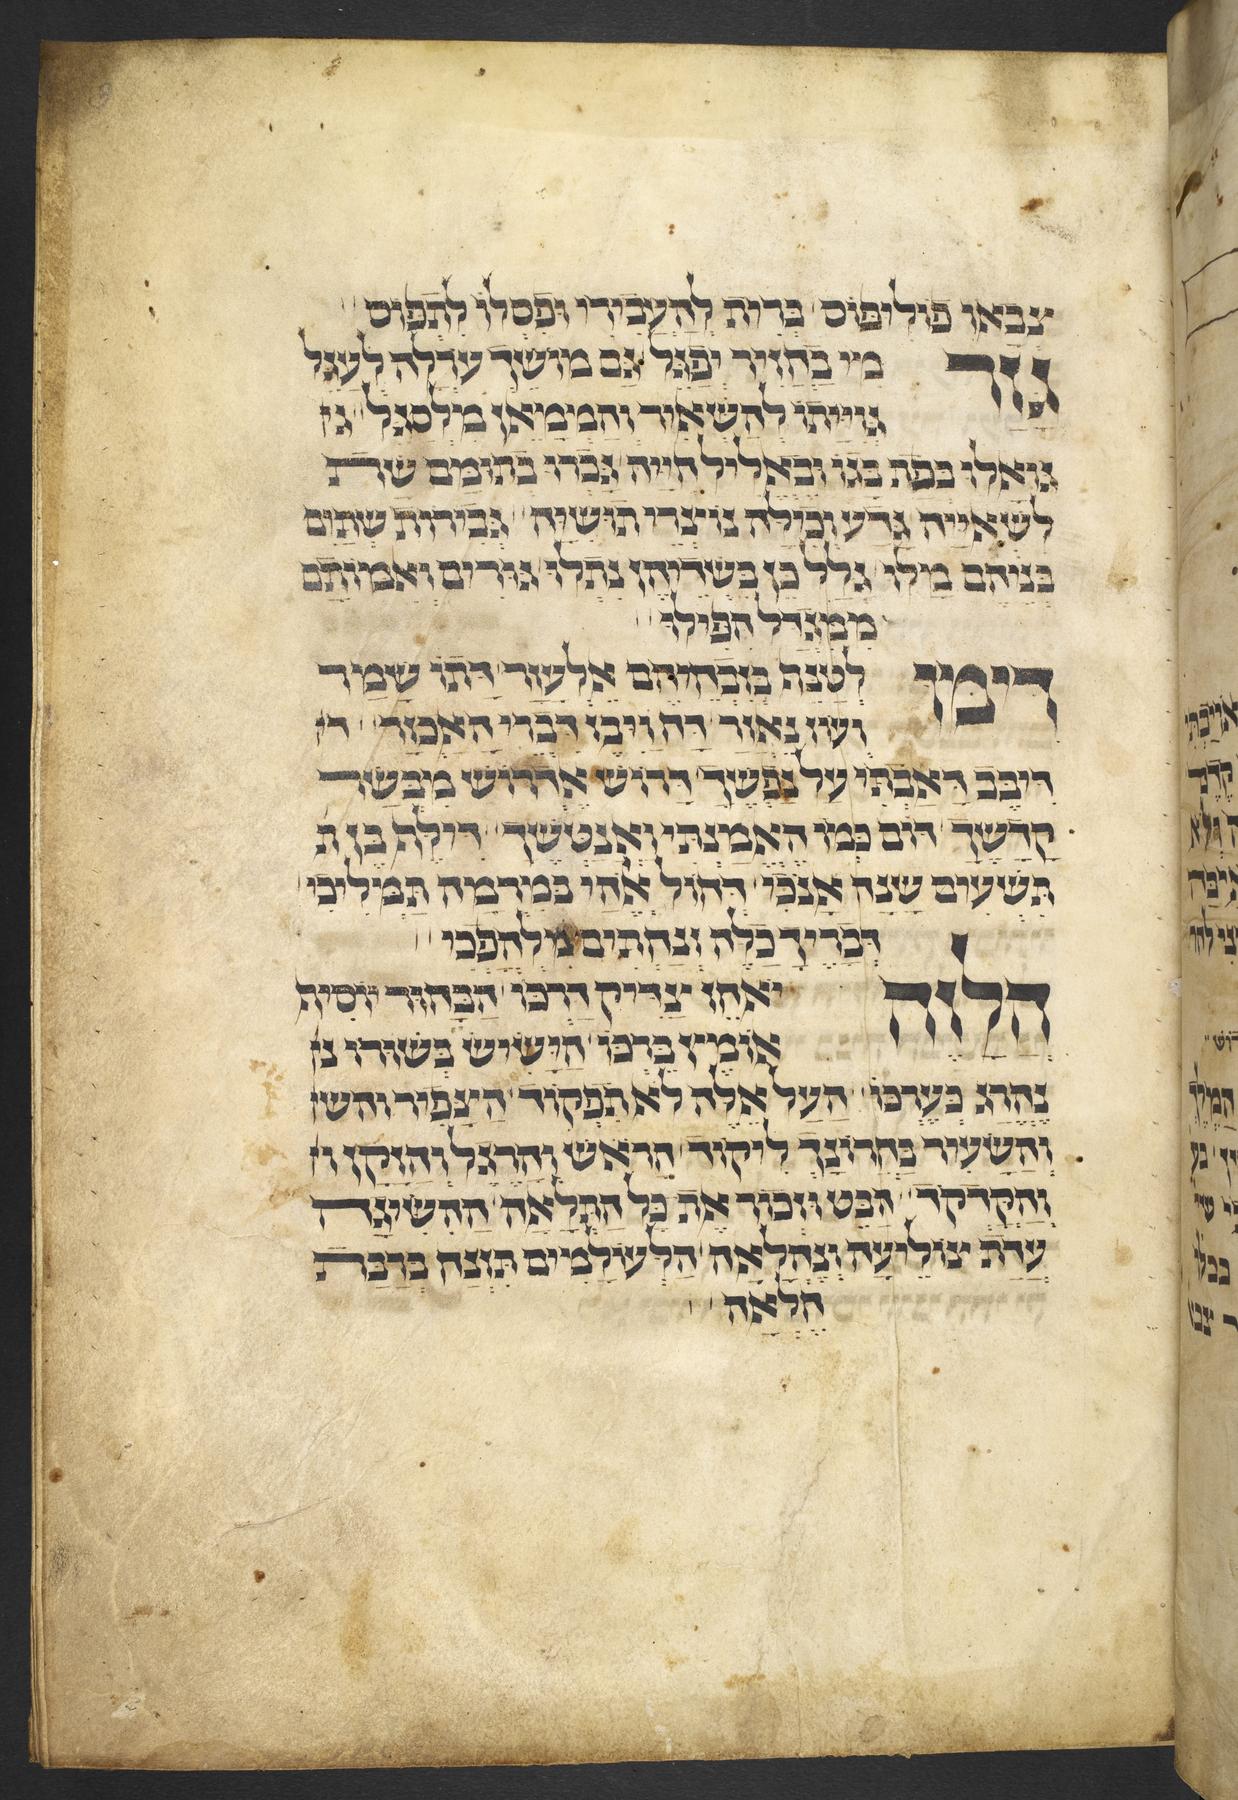 צבאו פוליפוס בדית להעבידי ופסלו לתפוס
גור מי בחזיר יפגל גם מושך ערלה לעגל
גוייתו להשאיר והממאן מלסגל גו
גואלו בפת בגו ובאליל חייה גברו בתומם שדת
לשאייה גדע וכילה נוצרי תושייה גבירות שתום
בניהם מלו גלל כן בשדיהן נתלו גורים ואמותם
ממגדל הפילו
דימין לטנף בזבחיהם אלעזר דתו שמר
ועון נאור דחוייבו דברי האכזר די
דיבב דאבתי על נפשך דרוש אדרוש מבשר
קדשך דום כמו האמנתי ואנטשך דילת בן ת
תשעים שנה אנכי דחול אחי במרמה תמליכי
דבריך כלה ונחתים מלהפכי
הלזה יאחז צדיק דרכו הבחור יוסית
אומץ ברכו הישיש בשורו נו
נהרג כערכו העל אלה לא תפקוד הצפיר והשו
והשעיר בחרונך ליקוד הראש והרגל והזקן וי
והקדקד הבט וזכור את כל התלאה ההשיגה
עדת צוליעה ונהלאה הלעולמים תוצה בדבת
הלאה